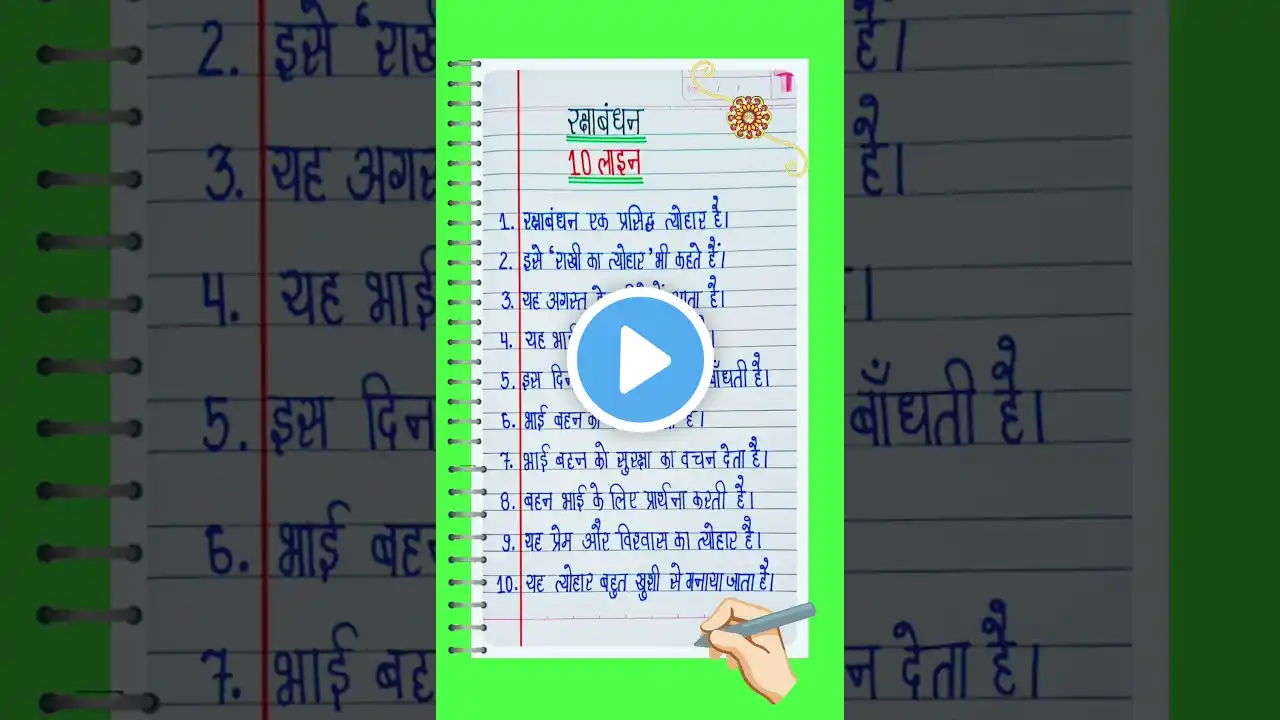 रक्षाबंधन
10 लाइन
1. रक्षाबंधन एक प्रसिद्ध त्योहार है।
2. इसे ‘राखी का त्योहार’ भी कहते हैं।
3. यह अगस्त आता है।
4. यह भाई
5. इस दिन बाँधती है।
6. भाई बहन को है।
7. भाई बहन को सुरक्षा का वचन देता है।
8. बहन भाई के लिए प्रार्थना करती है।
9. यह प्रेम और विश्वास का त्योहार है।
10. यह त्योहार बहुत खुशी से मनाया जाता है।